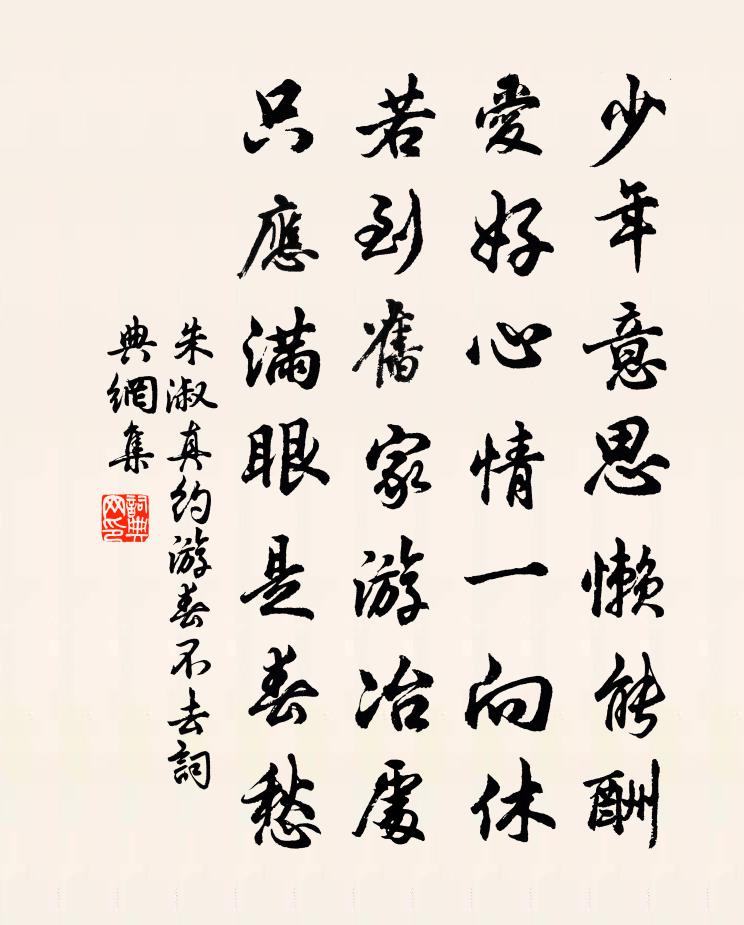 少年意思懶能酬
愛好心情一向休
若到舊家游冶處
只應滿眼是春愁
朱淑真約游春不去詞
典網集
詞典網印